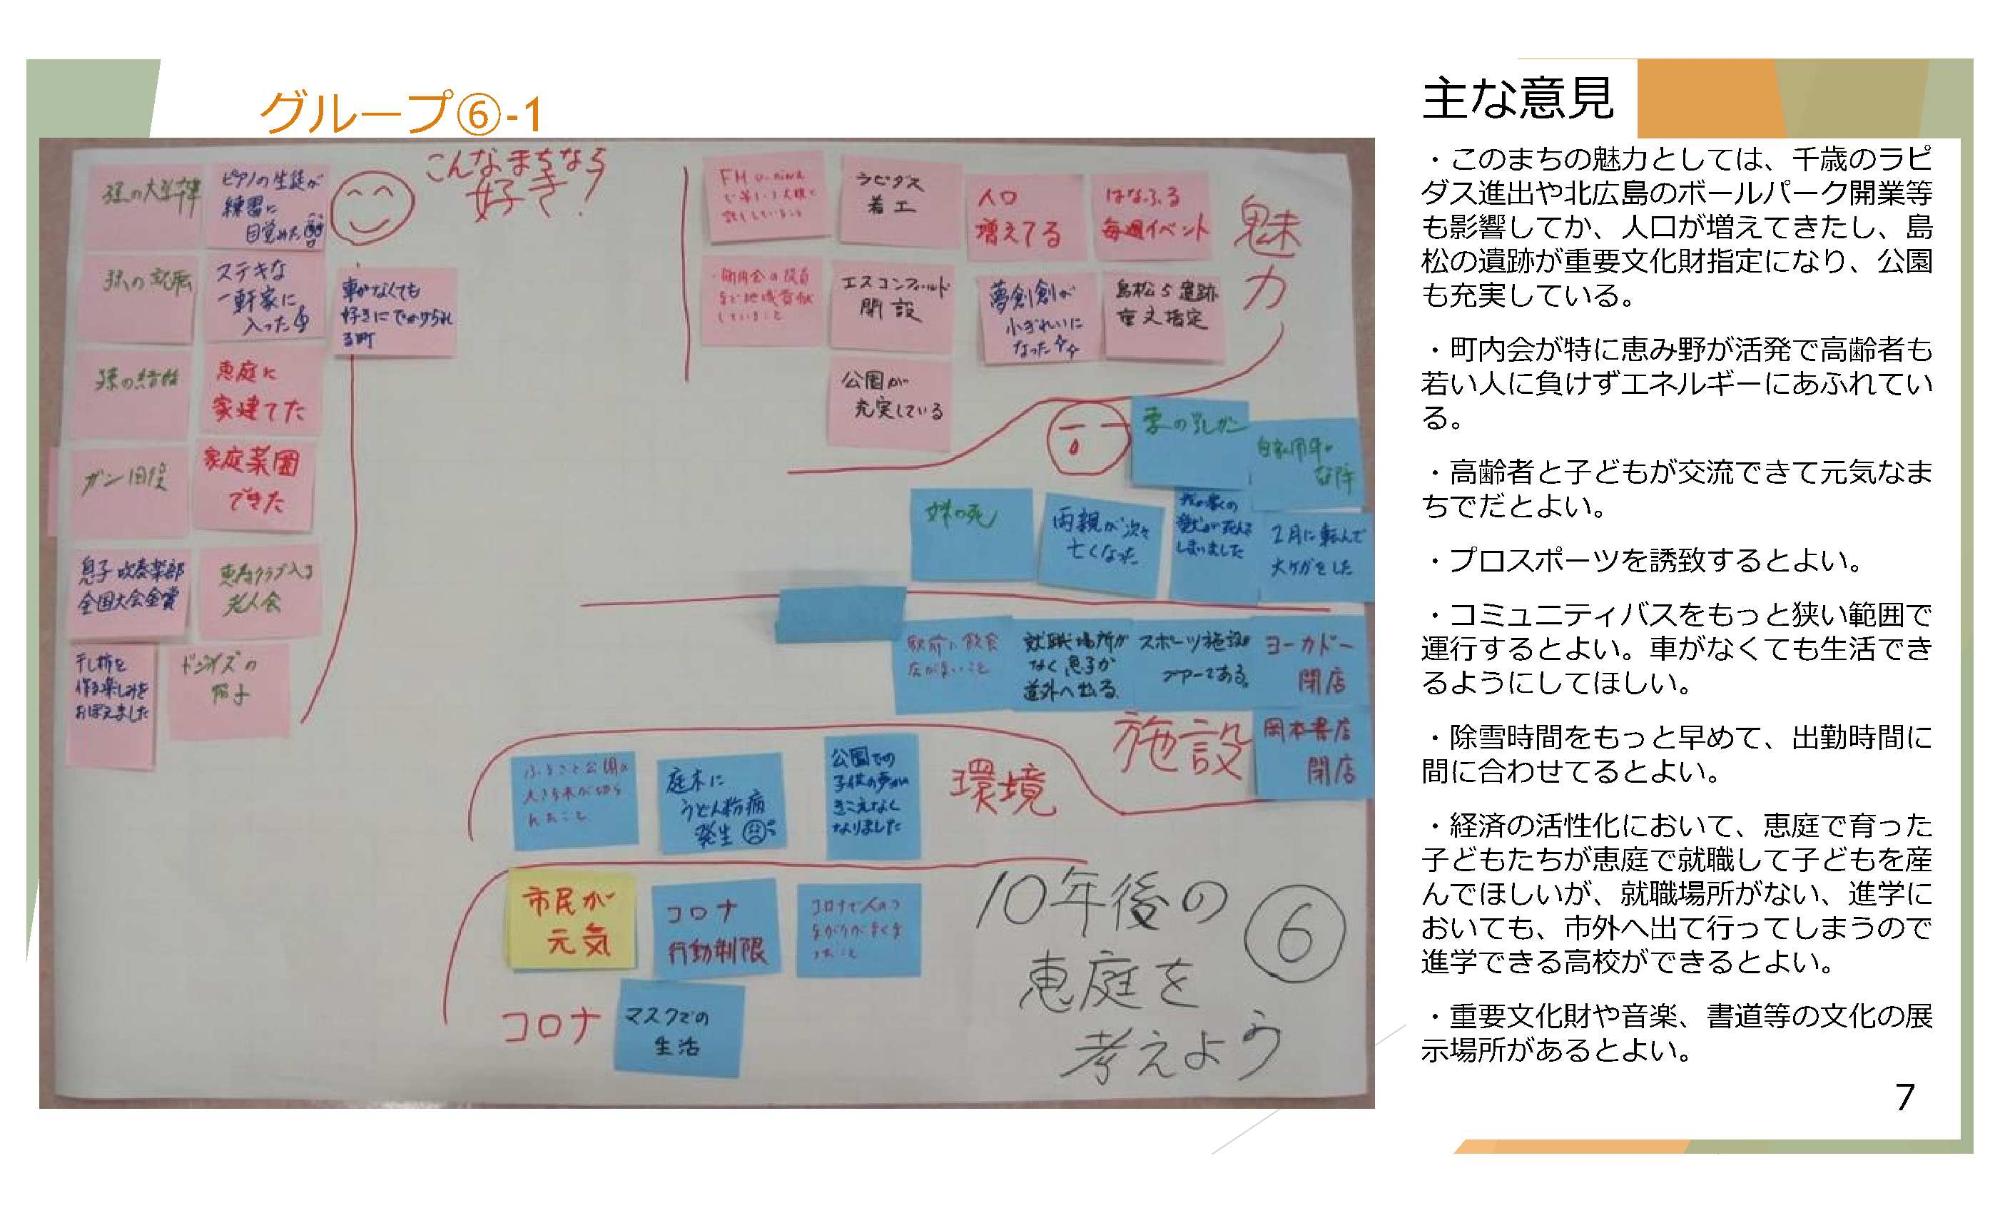 グループ⑥-1
こんなまちなら
好き!
孫の大学卒業
ピアノの生徒が
練習に
目覚めた
孫の就職
ステキな
一軒家に
入った
車がなくても
好きにでかけられ
る町
孫の結婚
恵庭に
家建てた
ガン回復
家庭菜園
できた
息子 吹奏楽部
全国大会金賞
クラブ入る
老人会
干し柿を
作る楽しみを
おぼえました
魅力
FM
ラピダス
着工
人口
増えてる
はなふる
毎週イベント
町内会の役員
など地域貢献
していること
エスコンフィールド
開設
夢創館が
小ぎれいに
なった
島松5遺跡
重文指定
公園が
充実している
妻の乳ガン
妹の死
両親が次々
亡くなった
我が家の
愛犬が死んで
しまいました
2月に転んで
大ケガをした
駅前に飲食
店がないこと
就職場所が
なく息子が
道外へ出る
スポーツ施設が
プアーである。
ヨーカドー
閉店
施設
岡本書店
閉店
環境
ふるさと公園の
大きな木が切ら
れたこと
庭木に
うどん粉病
発生
公園での
子供の声が
きこえなく
なりました
市民が
元気
コロナ
行動制限
コロナで人のつ
ながりがなくな
ったこと
コロナ
マスクでの
生活
10年後の
恵庭を
考えよう
⑥
主な意見
・このまちの魅力としては、千歳のラピ
ダス進出や北広島のボールパーク開業等
も影響してか、人口が増えてきたし、島
松の遺跡が重要文化財指定になり、公園
も充実している。
・町内会が特に恵み野が活発で高齢者も
若い人に負けずエネルギーにあふれてい
る。
・高齢者と子どもが交流できて元気なま
ちでだとよい。
・プロスポーツを誘致するとよい。
・コミュニティバスをもっと狭い範囲で
運行するとよい。車がなくても生活でき
るようにしてほしい。
・除雪時間をもっと早めて、出勤時間に
間に合わせてるとよい。
・経済の活性化において、恵庭で育った
子どもたちが恵庭で就職して子どもを産
んでほしいが、就職場所がない、進学に
おいても、市外へ出て行ってしまうので
進学できる高校ができるとよい。
・重要文化財や音楽、書道等の文化の展
示場所があるとよい。
7